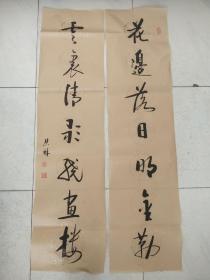 花邊落日明金勒
雲裏清歌繞畫樓